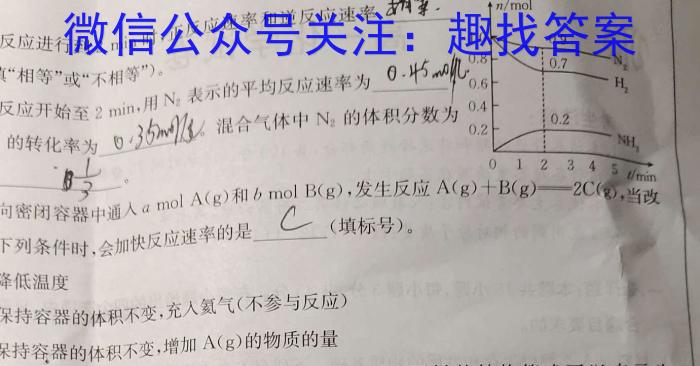 微信公众号关注：趣找答案
n/mol
反应进行
反应速率和逆反应速率
填“相等”或“不相等”）。
反应开始至 2 min，用 N₂ 表示的平均反应速率为 0.45mol/L
的转化率为 0.35mol/L。混合气体中 N₂ 的体积分数为
1/3。
0.8
0.7
0.6
0.4
0.2
0.2
N₂
H₂
NH₃
0 1 2 3 4 5 t/min
向密闭容器中通入 a mol A(g)和 b mol B(g)，发生反应 A(g)＋B(g)══2C(g)，当改
下列条件时，会加快反应速率的是 C （填标号）。
降低温度
保持容器的体积不变，充入氦气（不参与反应）
保持容器的体积不变，增加 A(g)的物质的量